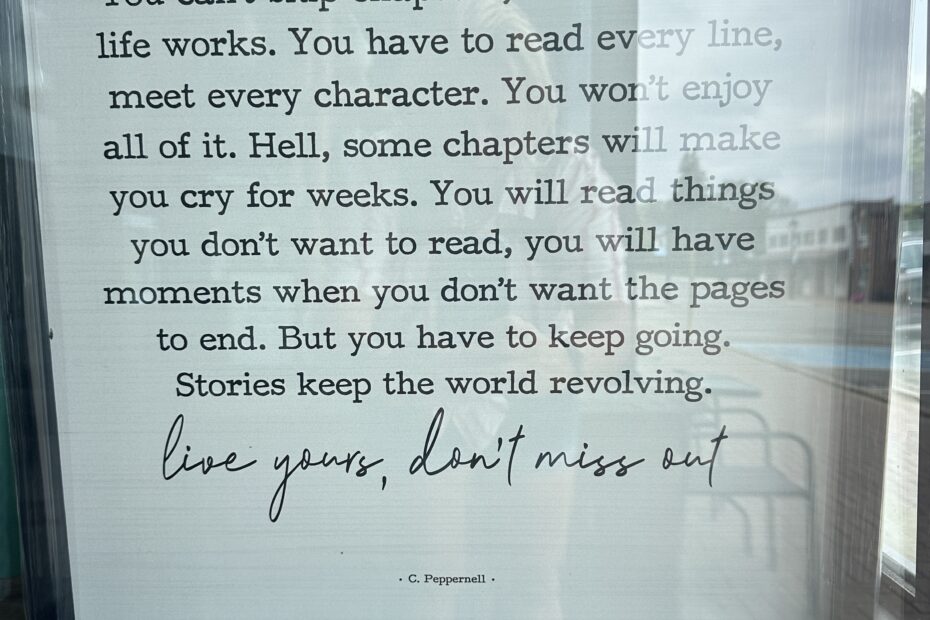 You can't skip chapters,
life works. You have to read every line,
meet every character. You won't enjoy
all of it. Hell, some chapters will make
you cry for weeks. You will read things
you don't want to read, you will have
moments when you don't want the pages
to end. But you have to keep going.
Stories keep the world revolving.
live yours, don't miss out
· C. Peppernell ·